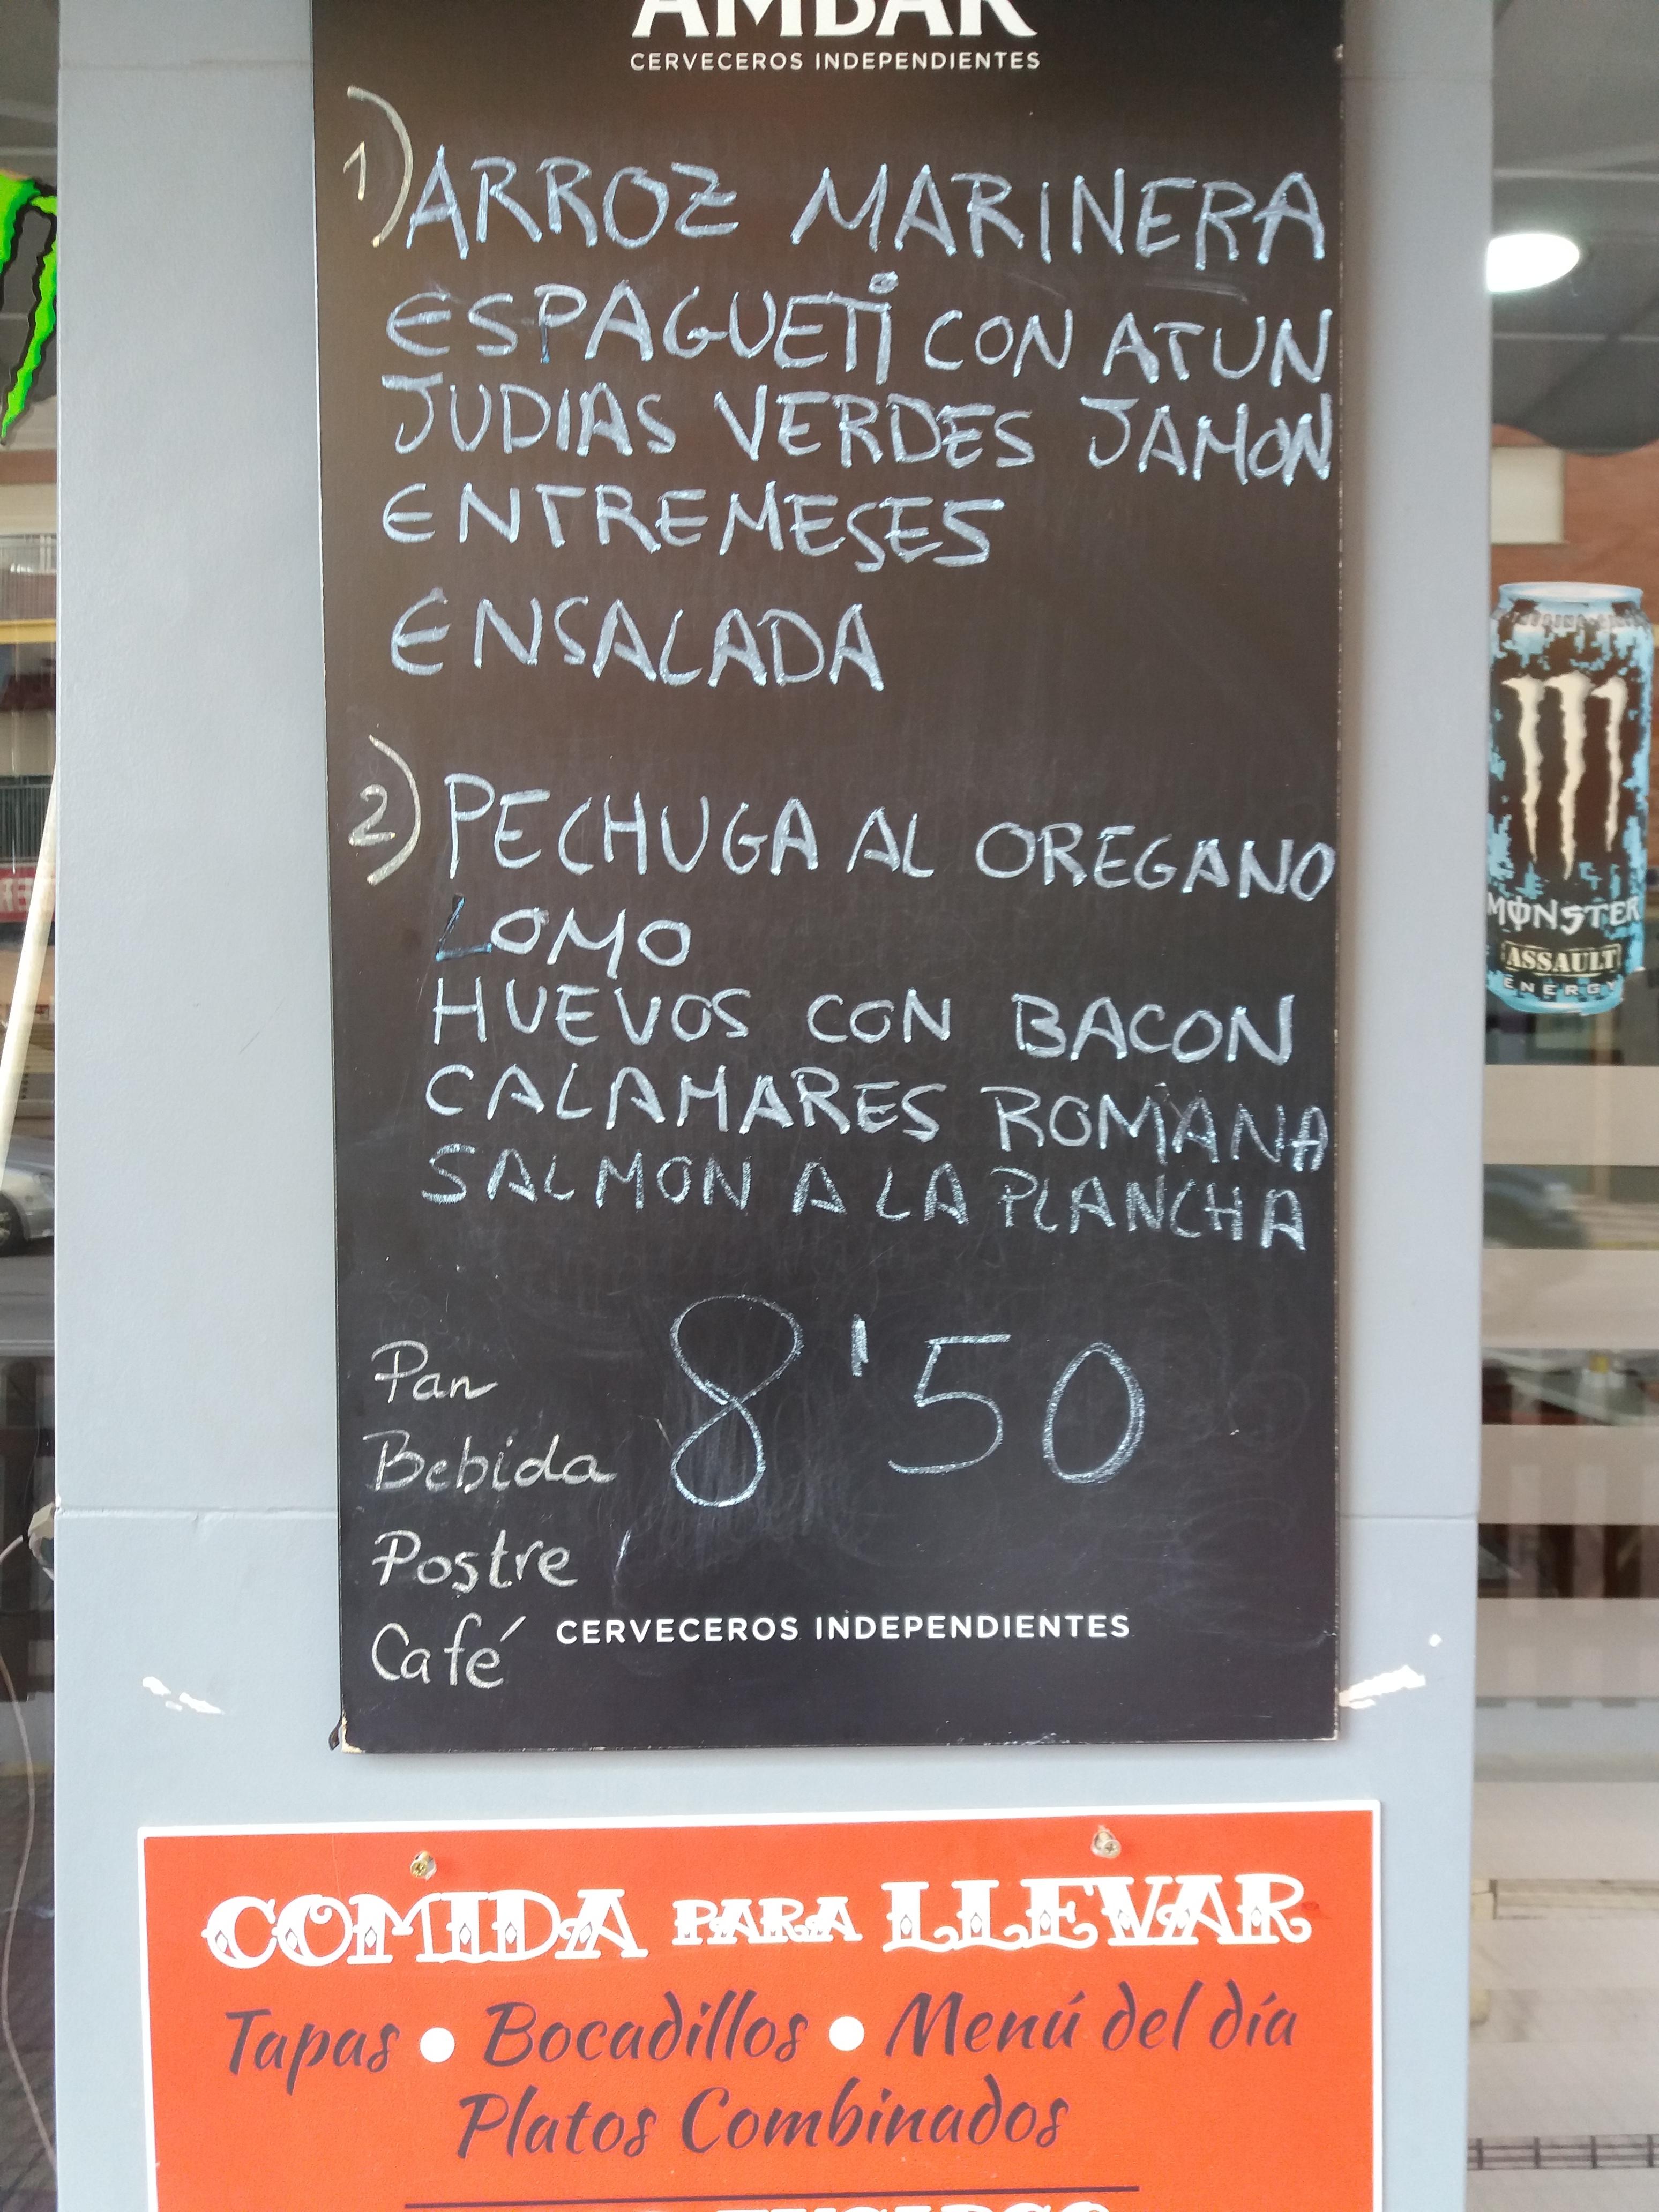 AMBAR
CERVECEROS INDEPENDIENTES
1) ARROZ MARINERA
ESPAGUETi CON ATUN
JUDIAS VERDES JAMON
ENTREMESES
ENSALADA
2) PECHUGA AL OREGANO
LOMO
HUEVOS CON BACON
CALAMARES ROMANA
SALMON A LA PLANCHA
8'50
Pan
Bebida
Postre
Café
CERVECEROS INDEPENDIENTES
MONSTER
ASSAULT
ENERGY
COMIDA PARA LLEVAR
Tapas • Bocadillos • Menú del día
Platos Combinados